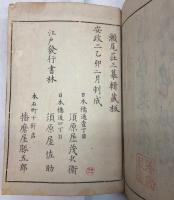 瀬尾荘三纂輯蔵板
安政二乙卯二月刻成
江戸發行書林
日本橋通壹丁目
須原屋茂兵衛
日本橋通四丁目
須原屋佐助
本石町十軒店
播磨屋勝五郎